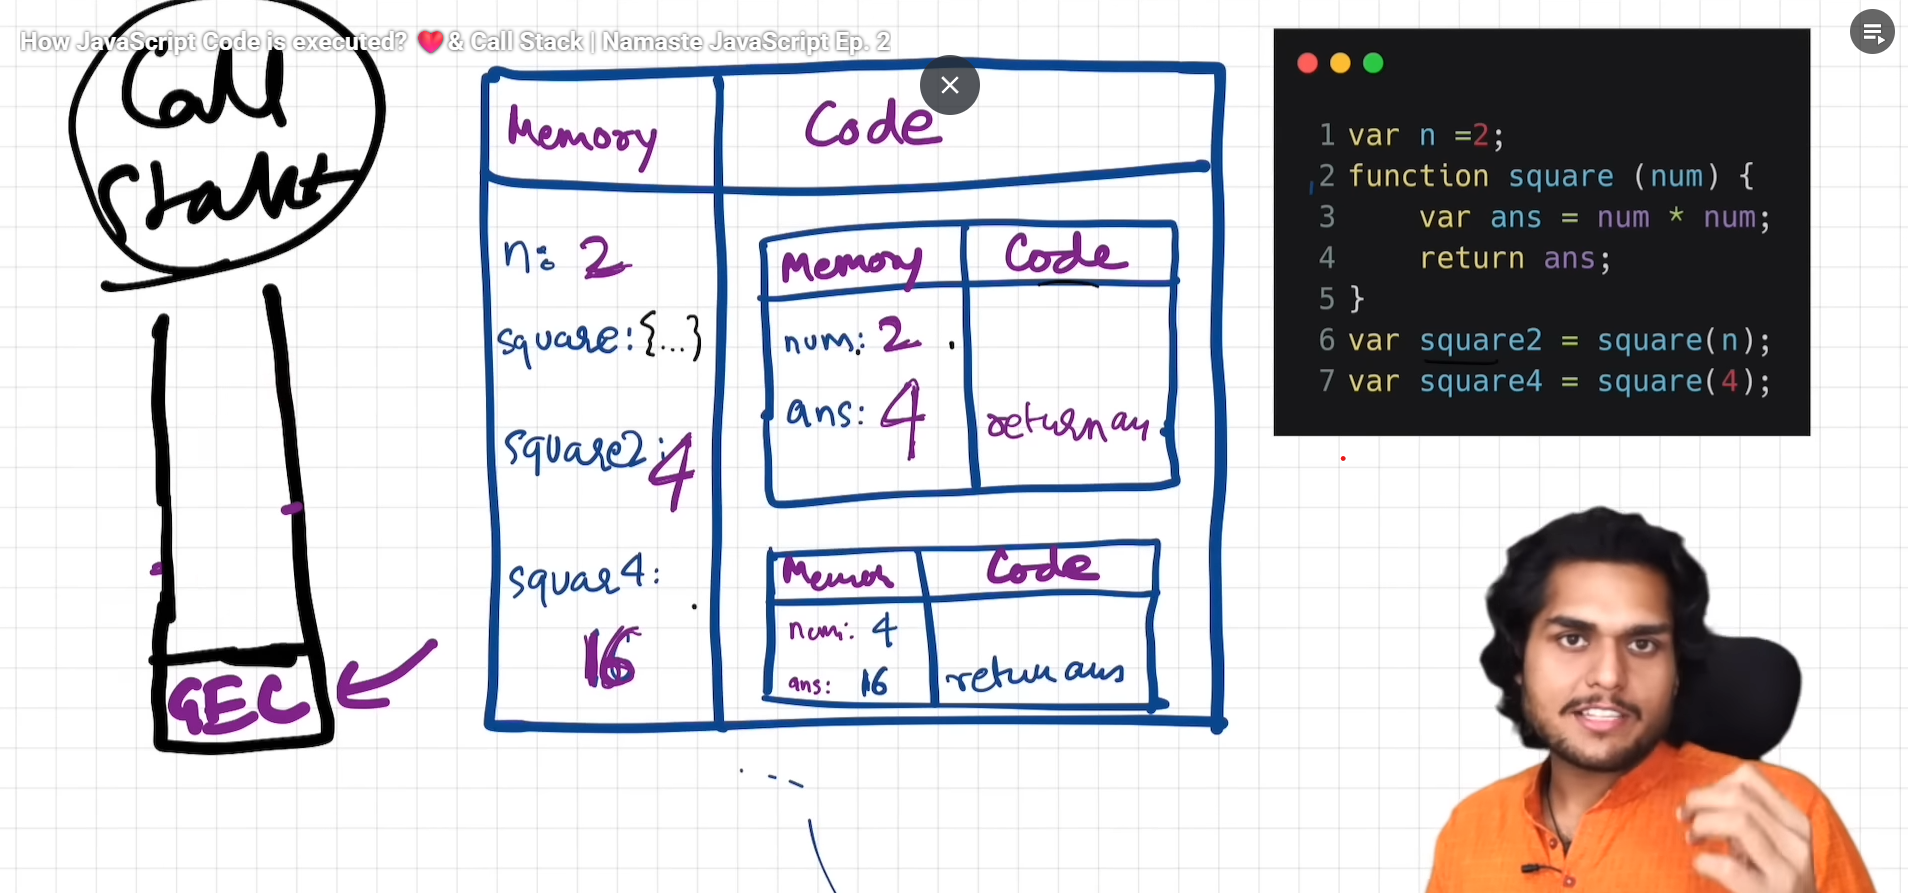 How JavaScript Code is executed? ❤️& Call Stack | Namaste JavaScript Ep. 2
Call
Stakt
GEC
Memory
Code
n: 2
square: {...}
square2: 4
squar4:
16
Memory
Code
num: 2
ans: 4
return an
Code
num: 4
ans: 16
return ans
1 var n =2;
2 function square (num) {
3 var ans = num * num;
4 return ans;
5 }
6 var square2 = square(n);
7 var square4 = square(4);